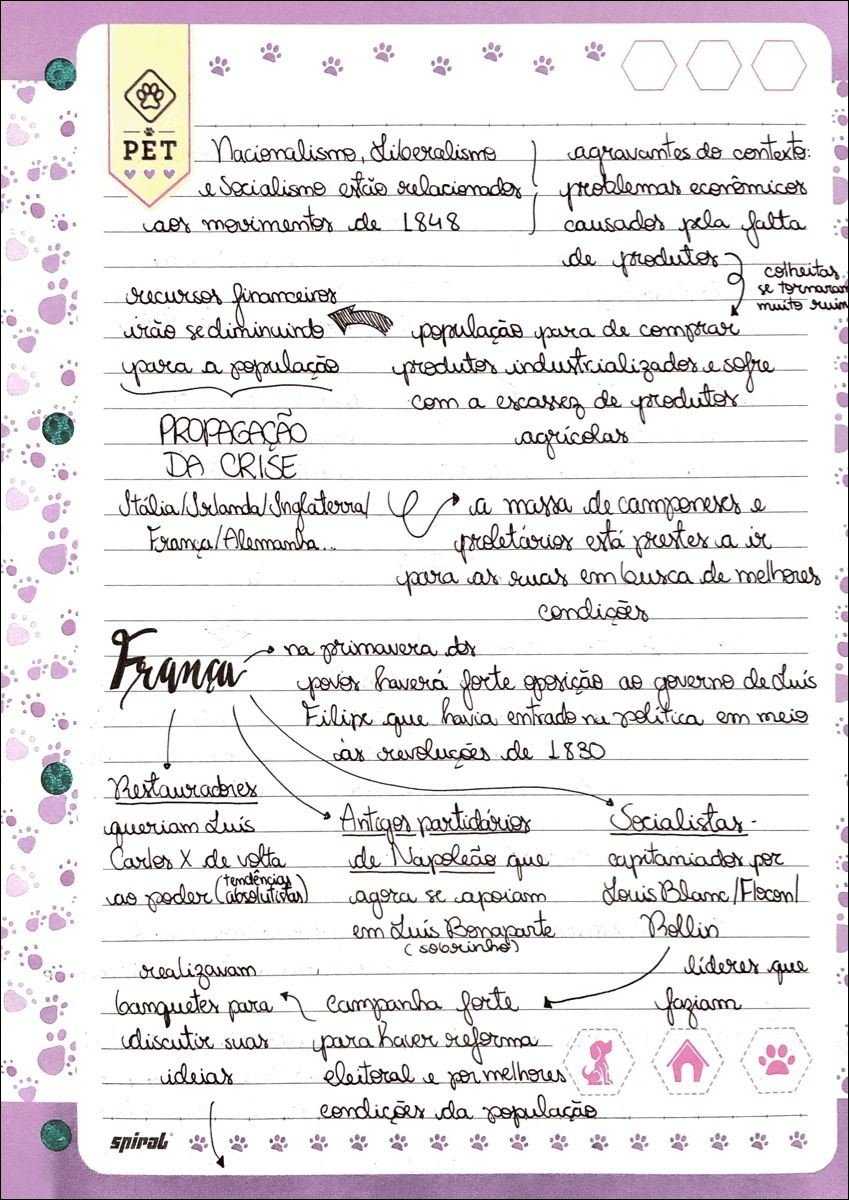 PET
Nacionalismo, Liberalismo
e Socialismo estão relacionados
aos movimentos de 1848
agravantes do contexto:
problemas econômicos
causados pela falta
de produtos
colheitas
se tornaram
muito ruim
população para de comprar
produtos industrializados e sofre
com a escassez de produtos
agrícolas
recursos financeiros
irão se diminuindo
para a população
PROPAGAÇÃO
DA CRISE
Itália/Irlanda/Inglaterra/
França/Alemanha...
a massa de camponeses e
proletários está prestes a ir
para as ruas em busca de melhores
condições
França
na primavera dos
povos haverá forte oposição ao governo de Luís
Filipe que havia entrado na política em meio
às revoluções de 1830
Restauradores
queriam Luís
Carlos X de volta
ao poder (tendências
absolutistas)
Antigos partidários
de Napoleão que
agora se apoiam
em Luís Bonaparte
(sobrinho)
Socialistas -
capitaniados por
Louis Blanc/Flocon/
Rollin
líderes que
faziam
campanha forte
para haver reforma
eleitoral e por melhores
condições da população
realizavam
banquetes para
discutir suas
ideias
spiral